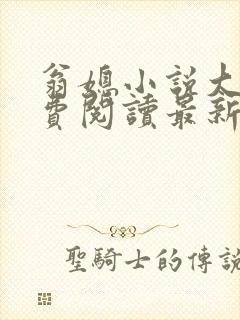 翁媳小説大
費閱讀最新
聖騎士的傳說